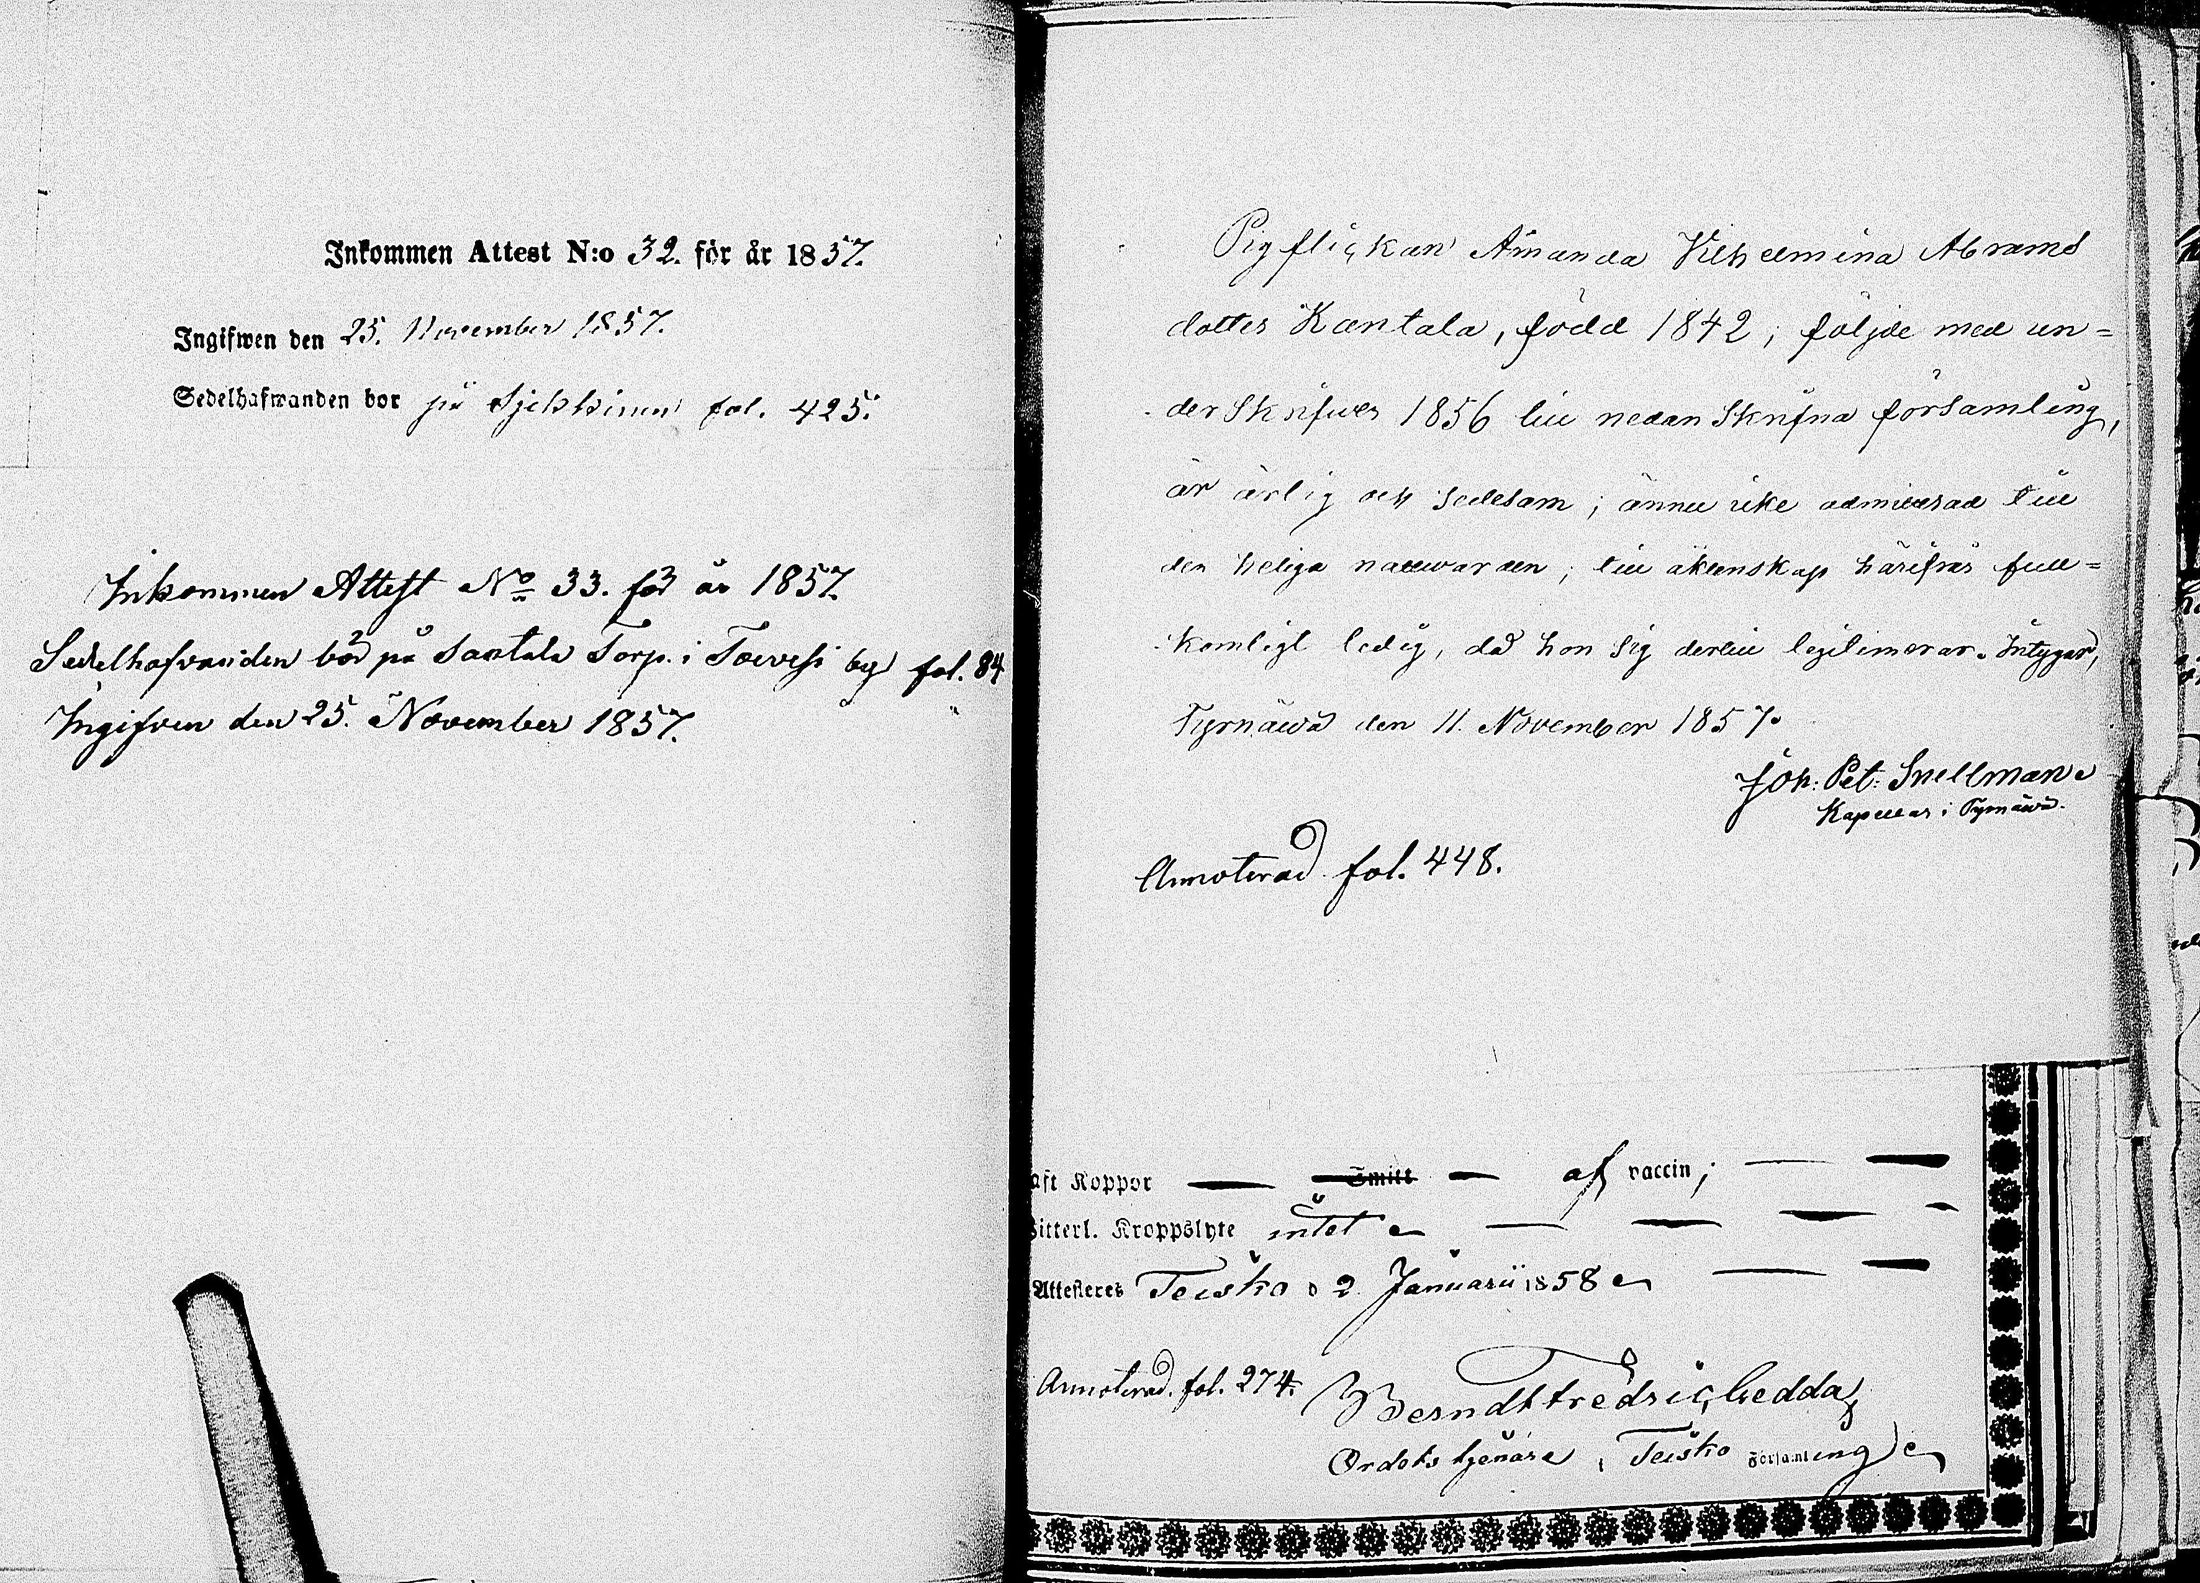 Inkommen Attest N:o 32. för år 1857.
Ingifwen den 25. November 1857.
Sedelhafwanden bor på fol. 425.
Inkommen Attest No 33. för år 1857.
Sedelhafvanden bor på Torp. i by fol. 84
Ingifven den 25. November 1857.
Pigflickan Amanda Vilhelmina Abrams
dotter Kantala, född 1842, följde med un=
derskrifven 1856 till nedanskrifna församling,
är ärlig och sedesam; ännu icke admitterad till
den heliga nattvarden; till äktenskap härifrån full=
komligt ledig, då hon sig dertill legitimerar. Intygar,
Tyrnäwä den 11. November 1857.
Joh: Pet: Snellman
Kapellan i Tyrnäwä.
Annoterad fol. 448.
aft Koppor — Smitt — af vaccin;
Witterl. Kroppslyte intet
Attesteres Teisko d 2 Januarii 1858
Annoterad. fol. 274.
Berndt Fredric Gedda
Ordets tjenare i Teisko Församling